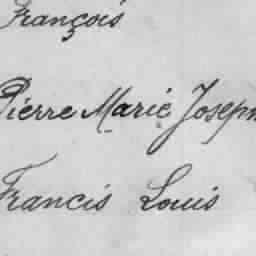 François
Pierre Marie Joseph
Francis Louis